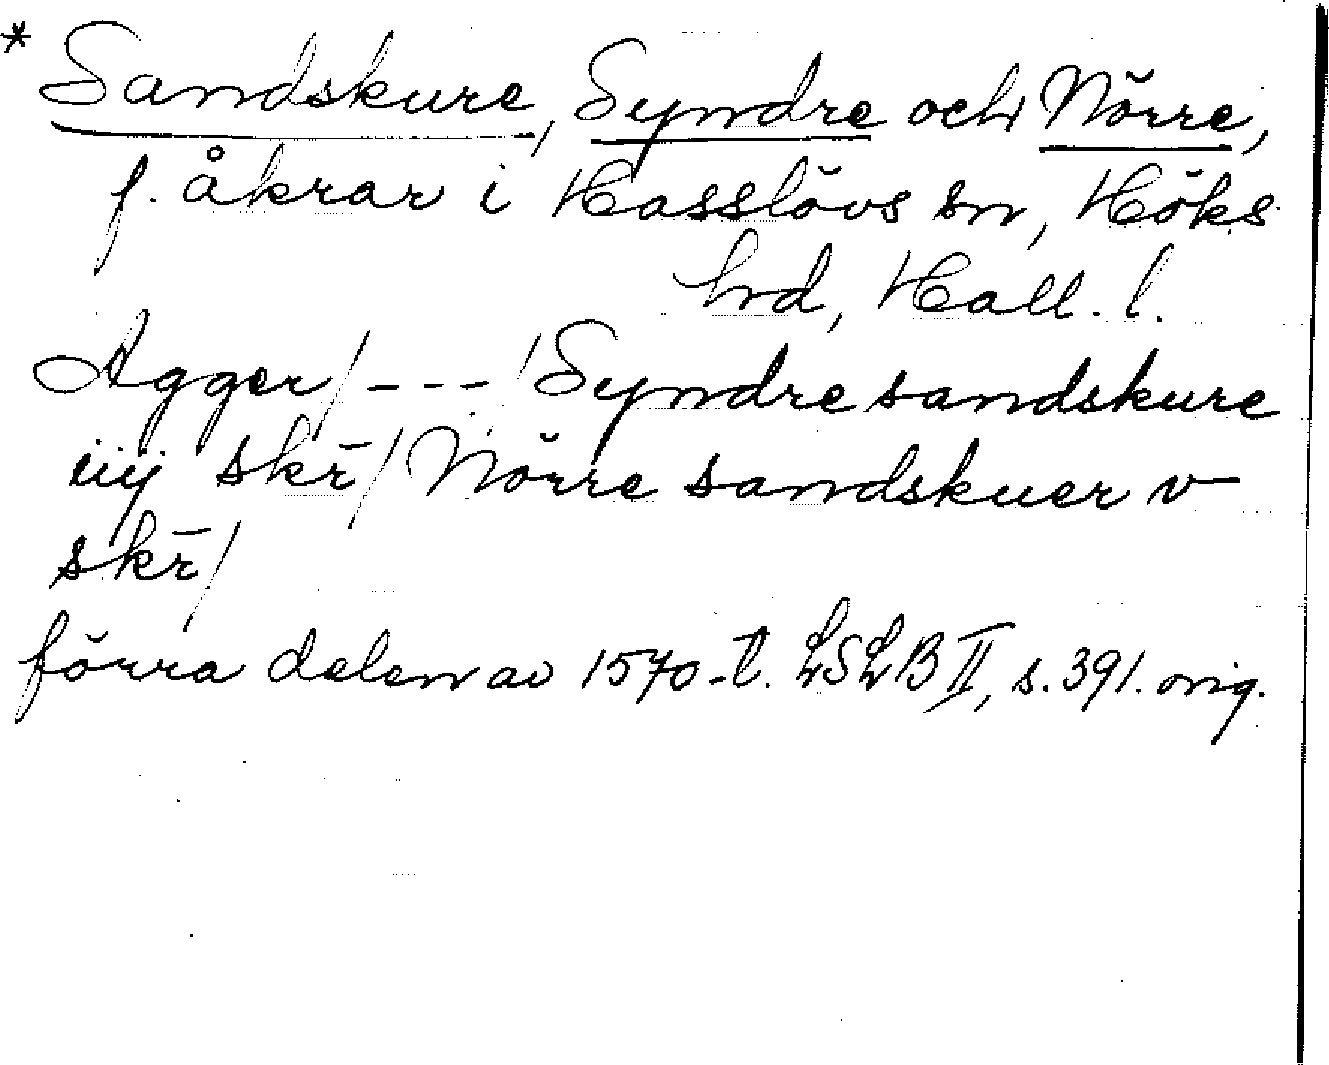 * Sandskure, Syndre och Nörre,
f. åkrar i Hasslövs sn, Höks
hd, Hall. l.
Agger/ - - - /Syndre sandskure
iiij skr̄/ Nörre sandskuer v
skr̄/
förra delen av 1570-t. LSLB II, s. 391. orig.